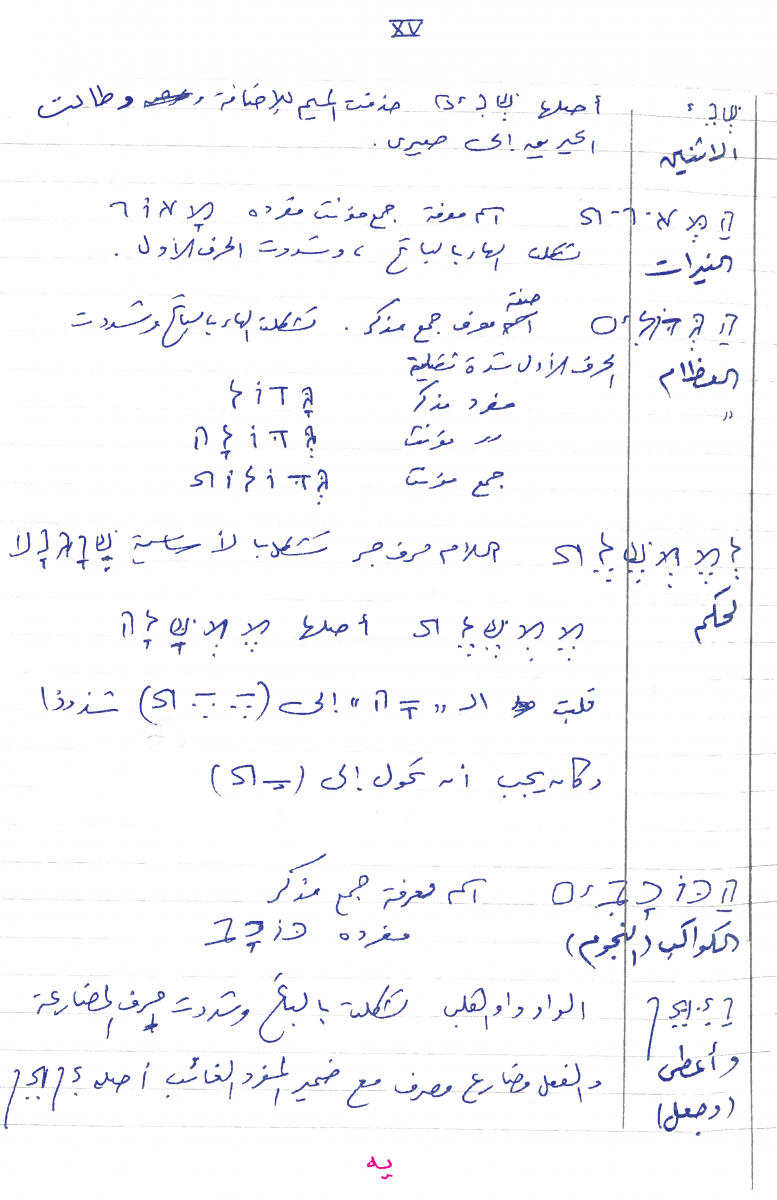 XV
שְׁנֵי أصلها שְׁנַיִם حذفت الميم للإضافة وطالت
الاثنين الحيريق إلى صيرى.
הַמְּאֹרֹת اسم معرفة جمع مؤنث مفرده מָאוֹר
النيرات شكلت الهاء بالباتح، وشددت الحرف الأول.
הַגְּדֹלִים صفة معرف جمع مذكر. شكلت الهاء بالباتح وشددت
العظام الحرف الأول شدة ثقيلة
" مفرد مذكر גָּדוֹל
〃 مؤنث גְּדוֹלָה
جمع مؤنث גְּדוֹלוֹת
לְמֶמְשֶׁלֶת اللام حرف جر شكلت بالأساسية
لحكم מֶמְשֶׁלֶת أصلها מֶמְשָׁלָה
قلبت الـ "ָה" إلى (ֶֶת) شذوذا
وكان يجب أن تحول إلى (ַת)
הַכּוֹכָבִים اسم معرفة جمع مذكر
الكواكب (النجوم) مفرده כּוֹכָב
וַיִּתֵּן الواو واو القلب شكلت بالباتح وشددت حرف المضارعة
وأعطى (وجعل) والفعل مضارع مصرف مع ضمير المفرد الغائب أصله יִתֵּן
يه